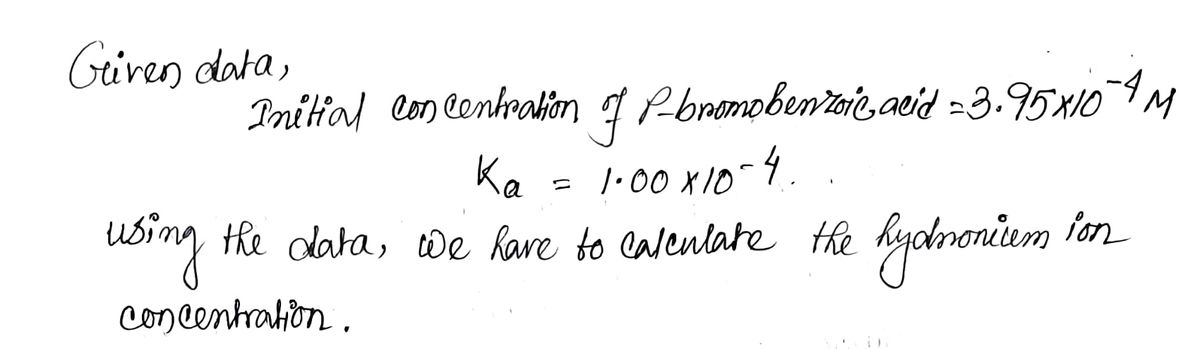 Given data,
Initial concentration of P-bromobenzoic acid = 3.95×10⁻⁴ M
Ka = 1.00 ×10⁻⁴.
using the data, we have to calculate the hydronium ion
concentration.